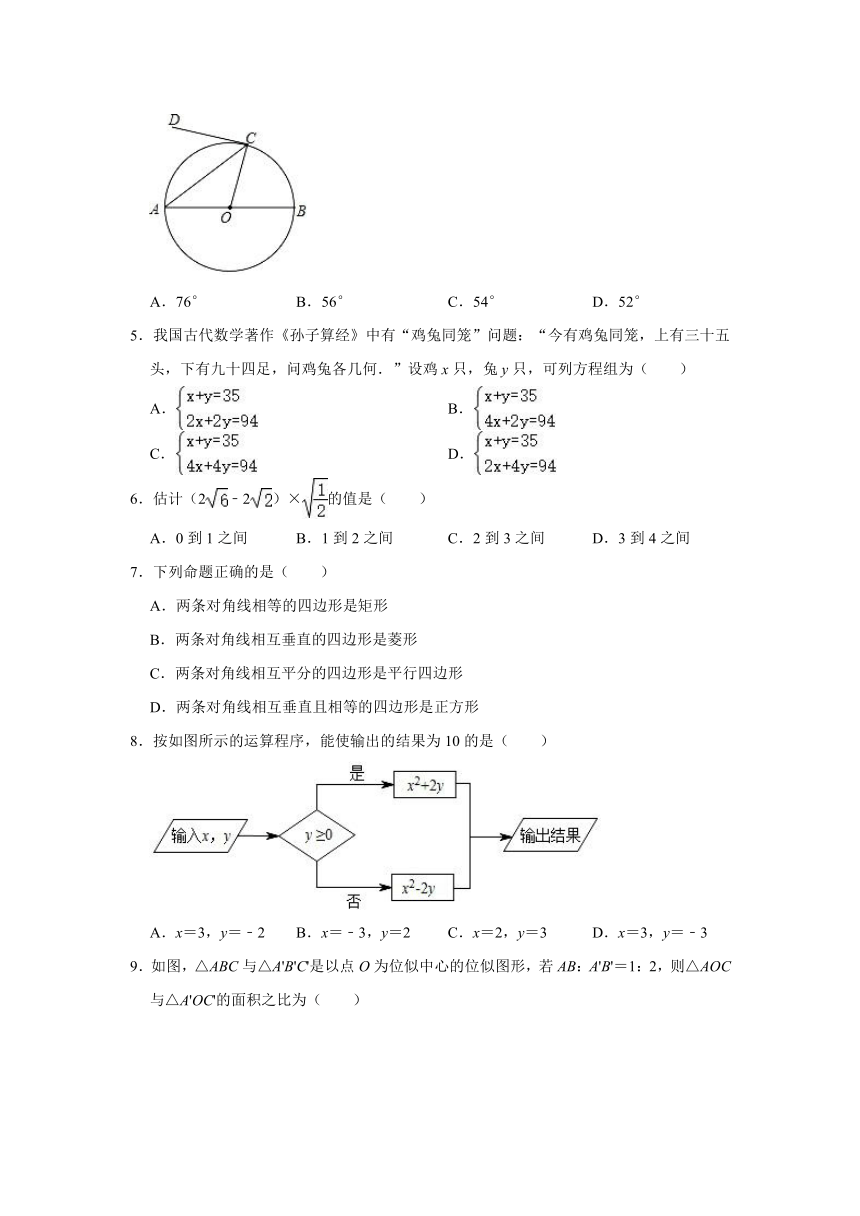 D
C
A
O
B
A．76° B．56° C．54° D．52°
5．我国古代数学著作《孙子算经》中有“鸡兔同笼”问题：“今有鸡兔同笼，上有三十五
头，下有九十四足，问鸡兔各几何．”设鸡 x 只，兔 y 只，可列方程组为（　　）
A．{x+y=35 2x+2y=94 B．{x+y=35 4x+2y=94
C．{x+y=35 4x+4y=94 D．{x+y=35 2x+4y=94
6．估计（2√6﹣2√2）×√(1/2)的值是（　　）
A．0 到 1 之间 B．1 到 2 之间 C．2 到 3 之间 D．3 到 4 之间
7．下列命题正确的是（　　）
A．两条对角线相等的四边形是矩形
B．两条对角线相互垂直的四边形是菱形
C．两条对角线相互平分的四边形是平行四边形
D．两条对角线相互垂直且相等的四边形是正方形
8．按如图所示的运算程序，能使输出的结果为 10 的是（　　）
是
x²+2y
输入x，y
y ≥0
输出结果
x²-2y
否
A．x＝3，y＝﹣2 B．x＝﹣3，y＝2 C．x＝2，y＝3 D．x＝3，y＝﹣3
9．如图，△ABC 与△A'B'C'是以点 O 为位似中心的位似图形，若 AB：A'B'＝1：2，则△AOC
与△A'OC'的面积之比为（　　）